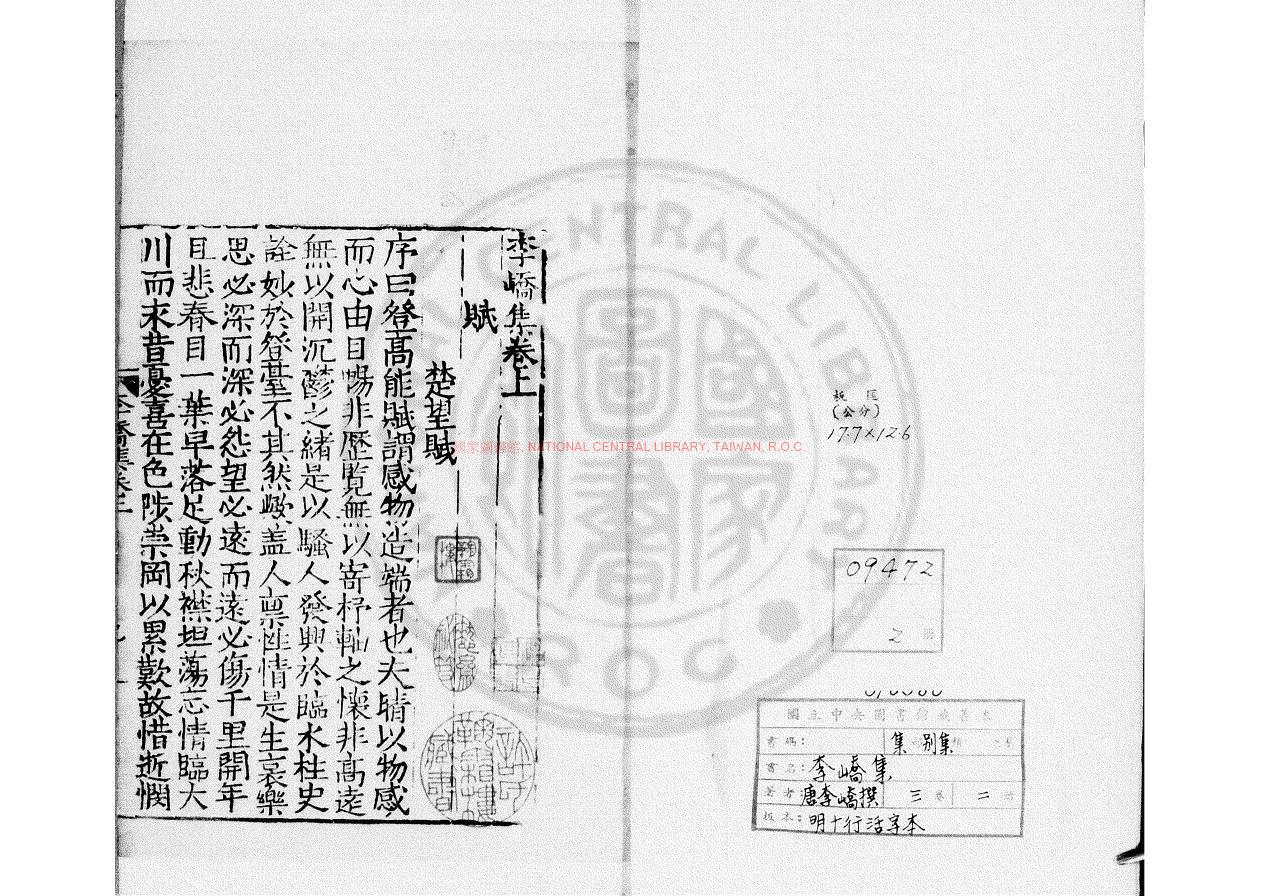 李嶠集卷上
賦
楚望賦
序曰登高能賦謂感物造端者也夫情以物感
而心由目暢非歷覽無以寄杼軸之懷非高遠
無以開沉鬱之緒是以騷人發興於臨水柱史
詮妙於登臺不其然歟蓋人禀性情是生哀樂
思必深而深必怨望必遠而遠必傷千里開年
且悲春目一葉早落足動秋襟坦蕩忘情臨大
川而永昔憂喜在色陟崇岡以累歎故惜逝憫
李嶠集卷上
國家圖書館, NATIONAL CENTRAL LIBRARY, TAIWAN, R.O.C.
NATIONAL CENTRAL LIBRARY
R O C
國家圖書
板匡
(公分)
17.7×12.6
09472
2
國立中央圖書館藏善本
書碼: 集 別集
書名: 李嶠集
著者 唐李嶠撰 三卷 二冊
板本: 明十行活字本